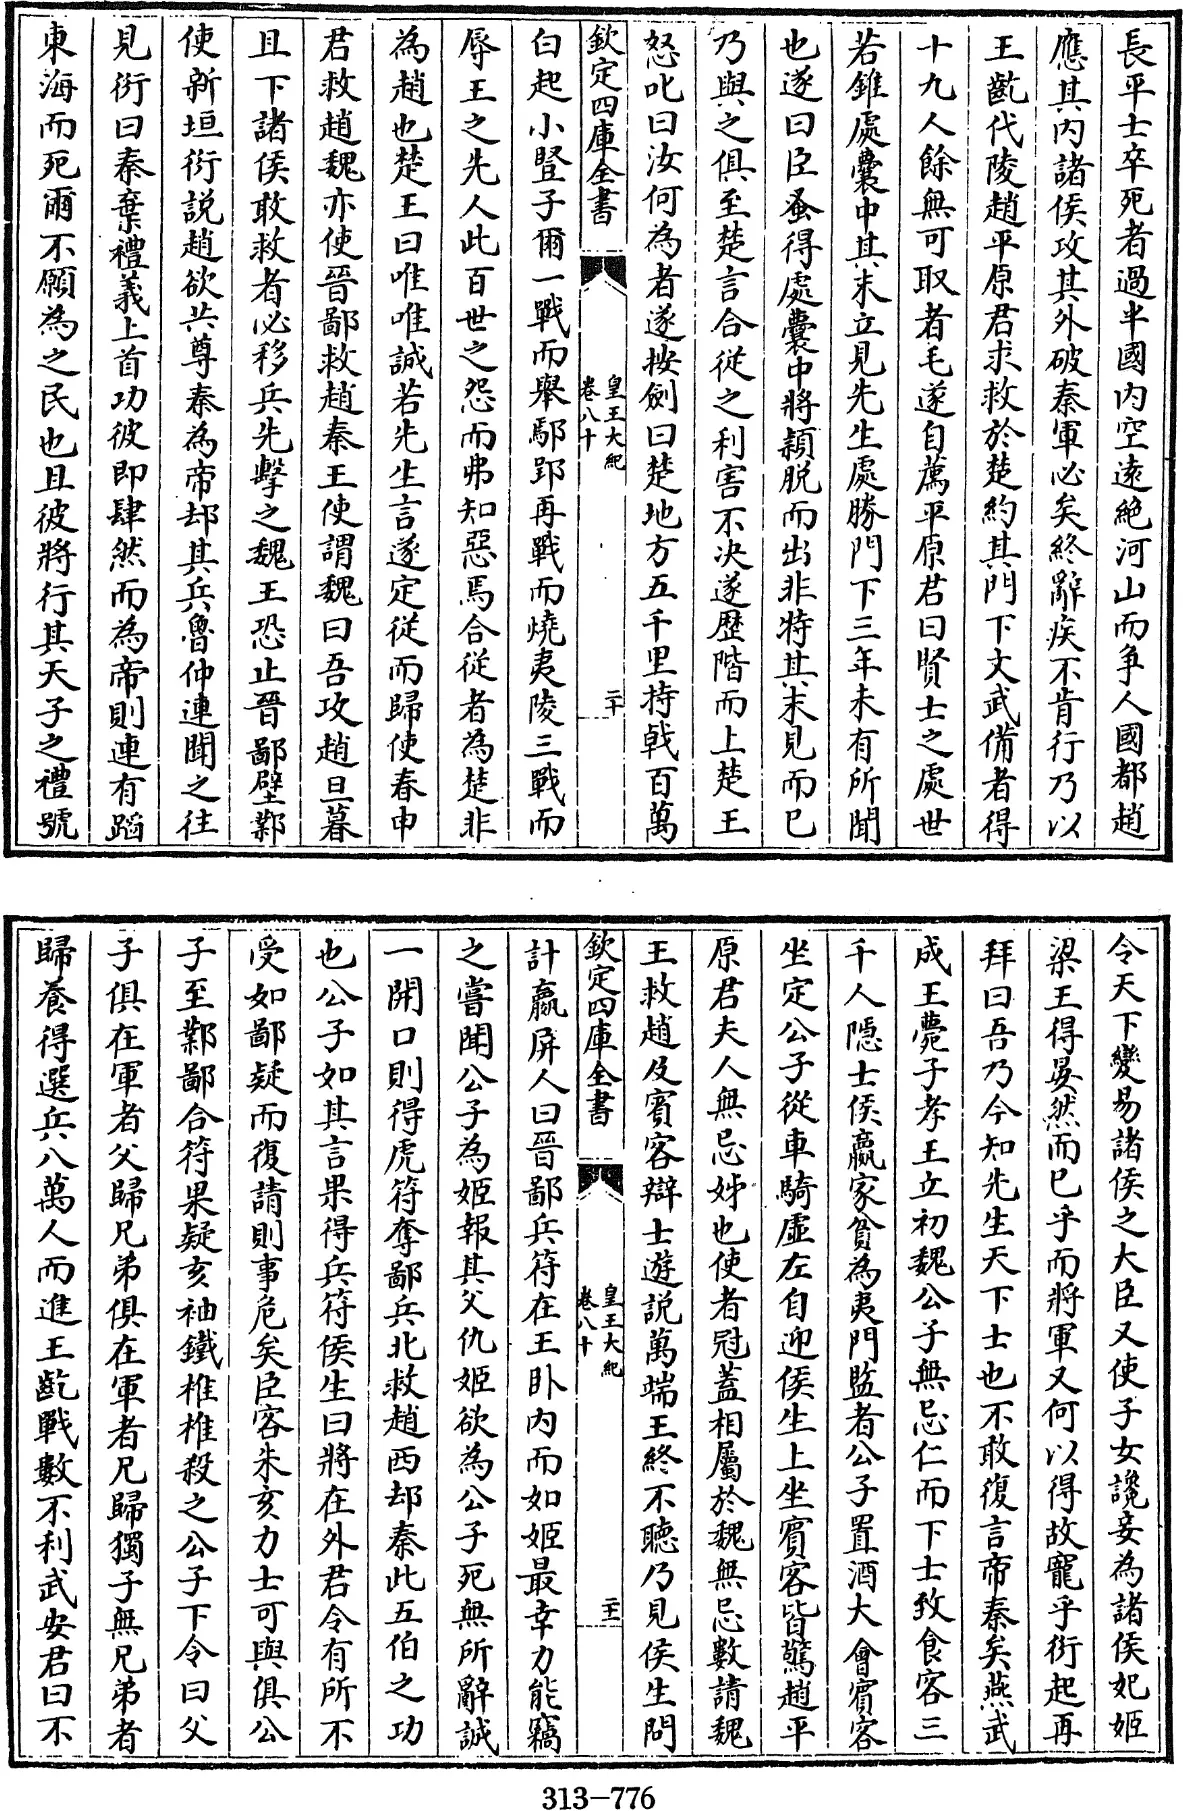 長平士卒死者過半國内空逺絶河山而争人國都趙
應其内諸侯攻其外破秦軍必矣終辭疾不肯行乃以
王齕代陵趙平原君求救於楚約其門下文武備者得
十九人餘無可取者毛遂自薦平原君曰賢士之處世
若錐處囊中其末立見先生處勝門下三年未有所聞
也遂曰臣蚤得處囊中將穎脱而出非特其末見而已
乃與之俱至楚言合從之利害不决遂歴階而上楚王
怒叱曰汝何為者遂按劍曰楚地方五千里持戟百萬
欽定四庫全書
皇王大紀
卷八十
二十
白起小豎子爾一戰而舉鄢郢再戰而燒夷陵三戰而
辱王之先人此百世之怨而弗知惡焉合從者為楚非
為趙也楚王曰唯唯誠若先生言遂定從而歸使春申
君救趙魏亦使晉鄙救趙秦王使謂魏曰吾攻趙旦暮
且下諸侯敢救者必移兵先擊之魏王恐止晉鄙壁鄴
使新垣衍説趙欲共尊秦為帝却其兵魯仲連聞之往
見衍曰秦棄禮義上首功彼即肆然而為帝則連有蹈
東海而死爾不願為之民也且彼將行其天子之禮號
令天下變易諸侯之大臣又使子女讒妾為諸侯妃姬
梁王得晏然而已乎而將軍又何以得故寵乎衍起再
拜曰吾乃今知先生天下士也不敢復言帝秦矣燕武
成王薨子孝王立初魏公子無忌仁而下士致食客三
千人隱士侯嬴家貧為夷門監者公子置酒大會賓客
坐定公子從車騎虚左自迎侯生上坐賓客皆驚趙平
原君夫人無忌姊也使者冠蓋相屬於魏無忌數請魏
王救趙及賓客辯士遊説萬端王終不聽乃見侯生問
欽定四庫全書
皇王大紀
卷八十
二十一
計嬴屏人曰晉鄙兵符在王卧内而如姬最幸力能竊
之嘗聞公子為姬報其父仇姬欲為公子死無所辭誠
一開口則得虎符奪鄙兵北救趙西却秦此五伯之功
也公子如其言果得兵符侯生曰將在外君令有所不
受如鄙疑而復請則事危矣臣客朱亥力士可與俱公
子至鄴鄙合符果疑亥袖鐵椎椎殺之公子下令曰父
子俱在軍者父歸兄弟俱在軍者兄歸獨子無兄弟者
歸養得選兵八萬人而進王齕戰數不利武安君曰不
313-776